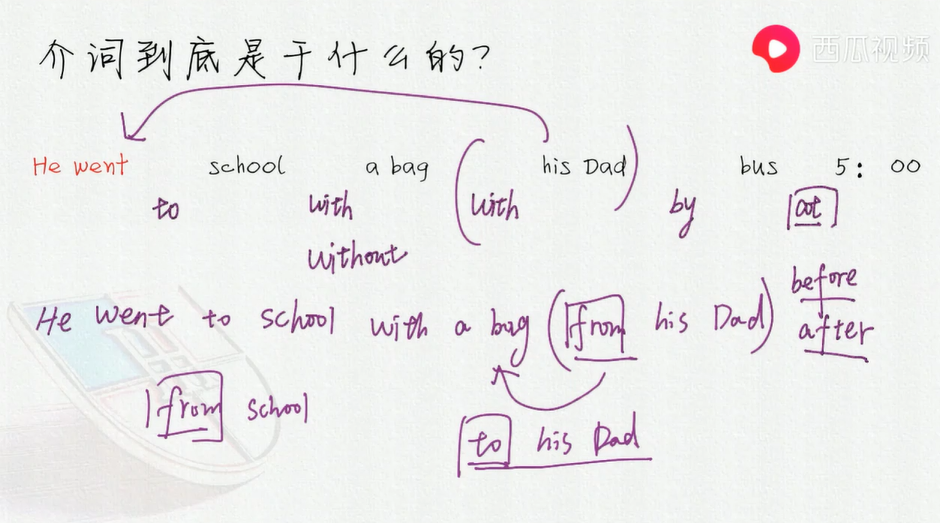 介词到底是干什么的?
西瓜视频
He went school a bag ( his Dad) bus 5: 00
to with (with by at
without before
He went to school with a bag (from his Dad) after
from school
to his Dad